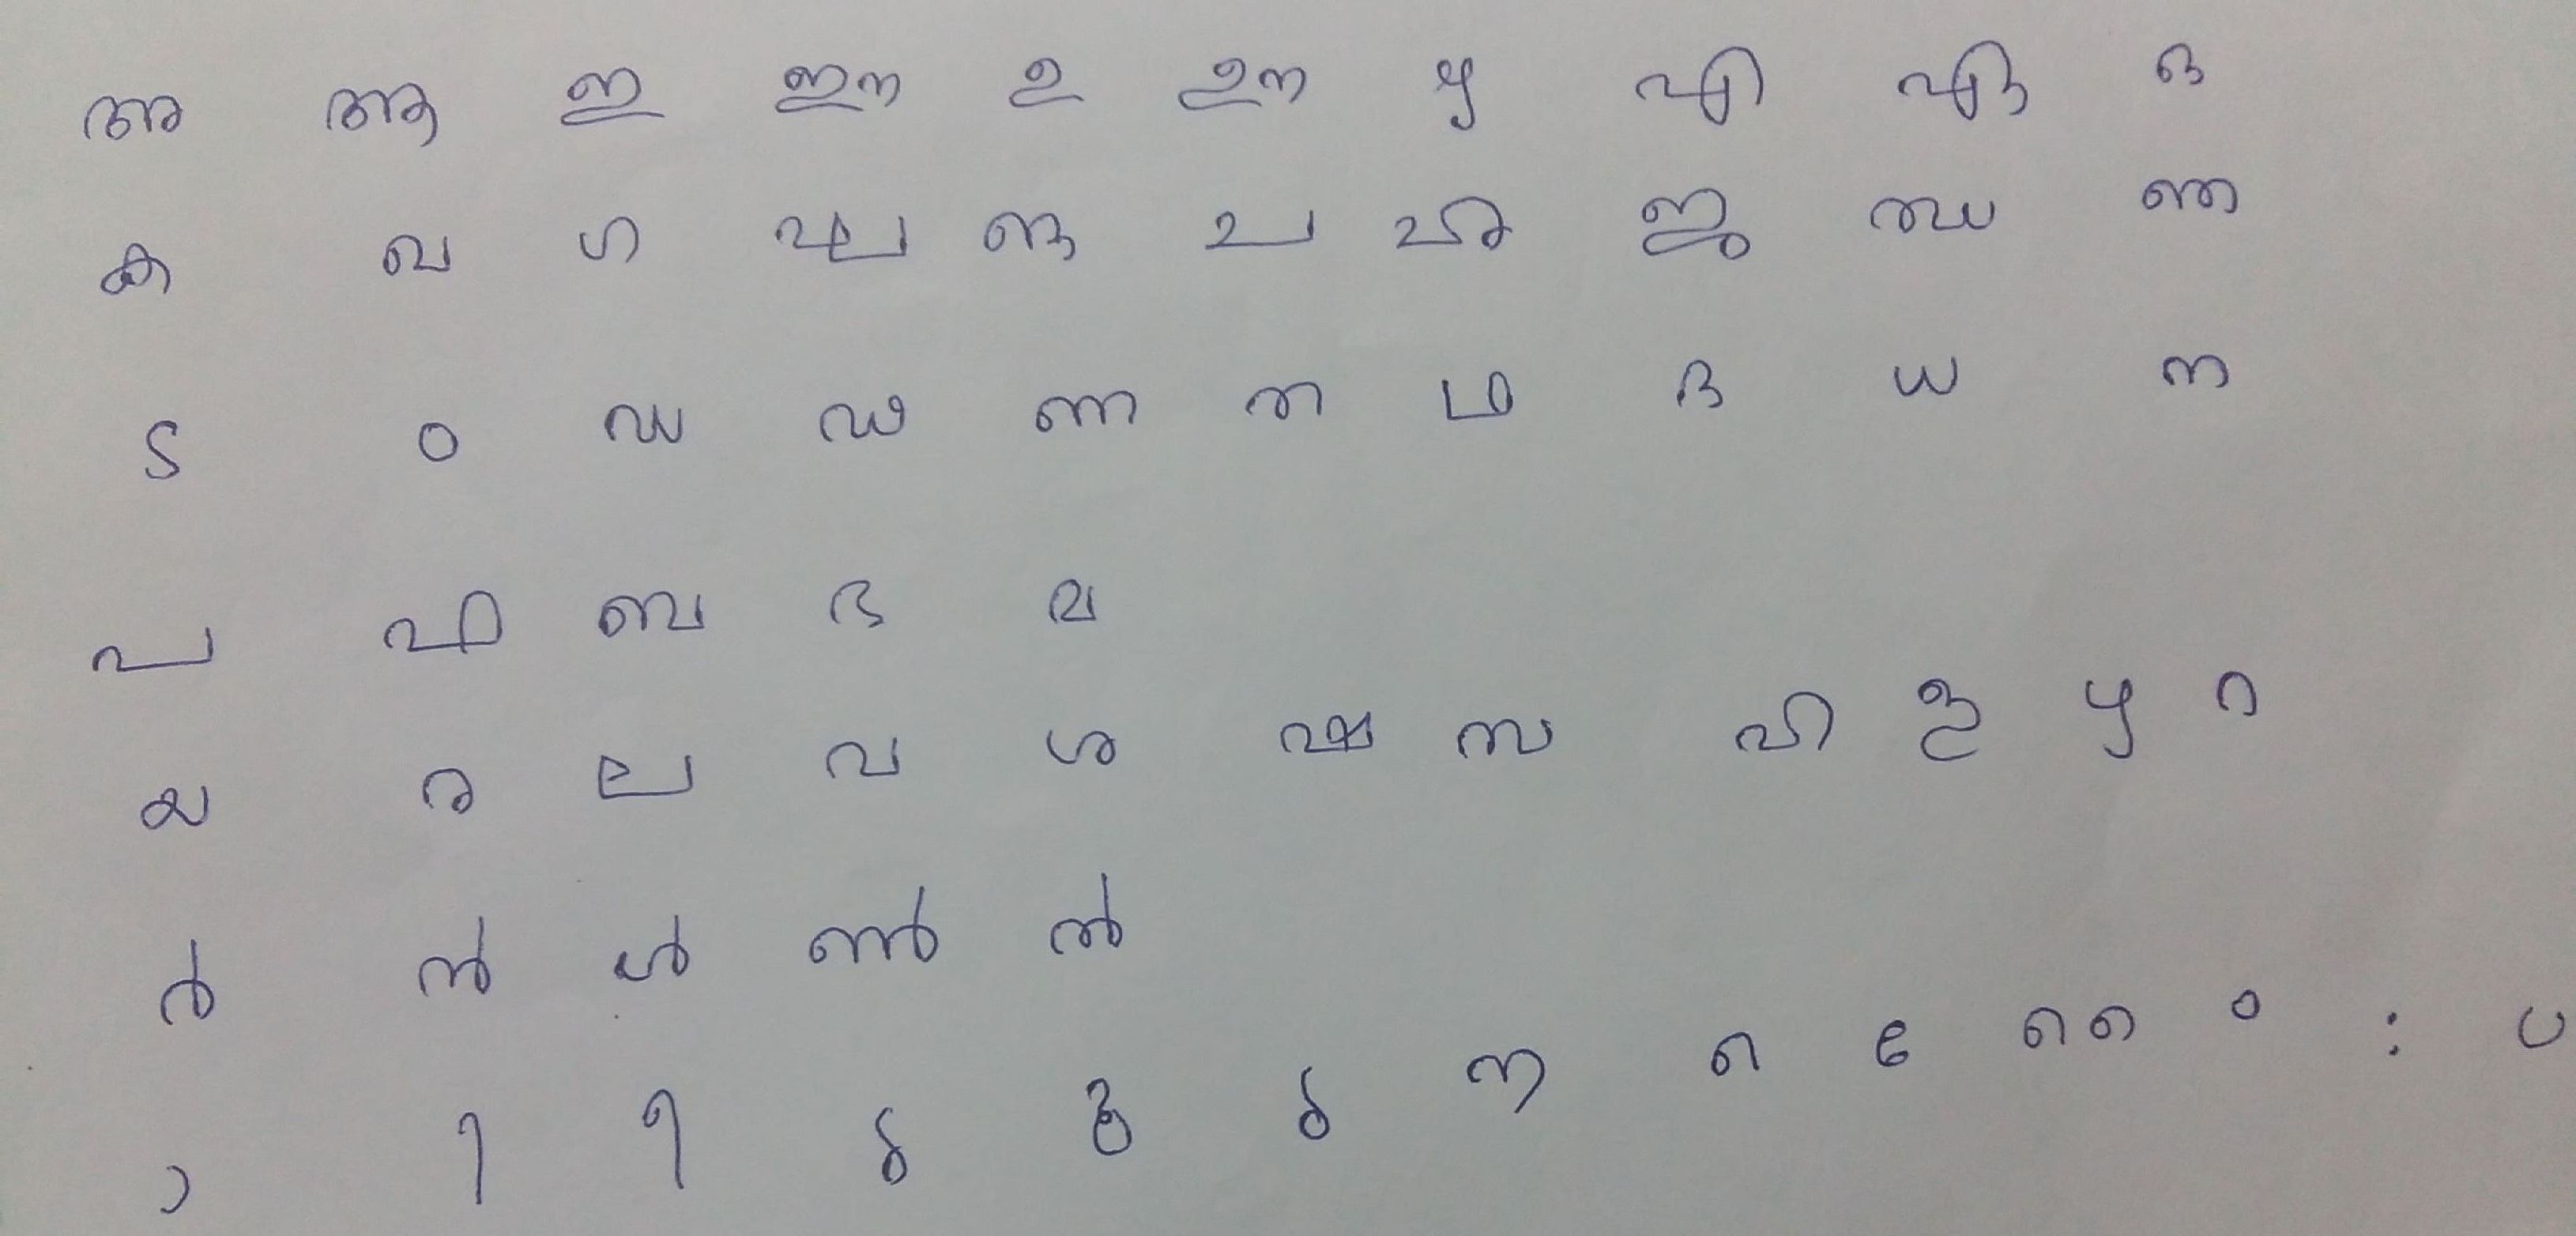 അ ആ ഇ ഈ ഉ ഊ ഋ എ ഏ ഒ
ക ഖ ഗ ഘ ങ ച ഛ ജ ഝ ഞ
ട ഠ ഡ ഢ ണ ത ഥ ദ ധ ന
പ ഫ ബ ഭ മ
യ ര ല വ ശ ഷ സ ഹ ള ഴ റ
ർ ൻ ൾ ൺ ൽ
ാ ി ീ ു ൂ ൃ െ േ ൈ ം ഃ ്